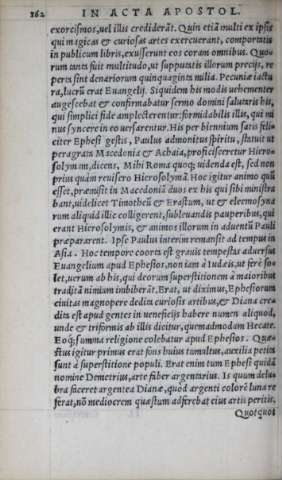 162 IN ACTA APOSTOL.
exorcismos, uel illis crediderãt. Quin etiã multi ex ipsis
qui magicas & curiosas artes exercuerant, comportatis
in publicum libris, exusserunt eos coram omnibus. Quo-
rum tanta fuit multitudo, ut supputatis illorum precijs, re
perta sint denariorum quinquaginta milia. Pecuniæ iactu
ra, lucrũ erat Euangelij. Siquidem his modis uehementer
augescebat & confirmabatur sermo domini salutaris his,
qui simplici fide amplecterentur: formidabilis illis, qui mi
nus syncere in eo uersarentur. His per biennium satis feli-
citer Ephesi gestis, Paulus admonitus spiritu, statuit ut
peragrata Macedonia & Achaia, proficisceretur Hiero-
solymam, dicens, Mihi Roma quoq; uidenda est, sed non
prius quàm reuisero Hierosolymã. Hoc igitur animo quũ
esset, præmisit in Macedoniã duos ex his qui sibi ministra
bant, uidelicet Timotheũ & Erastum, ut & eleemosyna
rum aliquid illic colligerent, subleuandis pauperibus, qui
erant Hierosolymis, & animos illorum in aduentũ Pauli
præpararent. Ipse Paulus interim remansit ad tempus in
Asia. Hoc tempore coorta est grauis tempestas aduersus
Euangelium apud Ephesios, non iam à Iudæis, ut ferè so-
let, uerum ab his, qui deorum superstitionem à maioribus
traditã nimium imbiberãt. Erat, ut diximus, Ephesiorum
ciuitas magnopere dedita curiosis artibus, & Diana cre-
dita est apud gentes in ueneficijs habere numen aliquod,
unde & triformis ab illis dicitur, quemadmodum Hecate.
Eoq; summa religione colebatur apud Ephesios. Quæ-
stus igitur primus erat fons huius tumultus, auxilia petita
sunt à superstitione populi. Erat enim tum Ephesi quidã
nomine Demetrius, arte faber argentarius. Is quum delu-
bra faceret argentea Dianæ, quòd argenti colorẽ luna re
ferat, nõ mediocrem quæstum adferebat eius artis peritis,
Quotquot